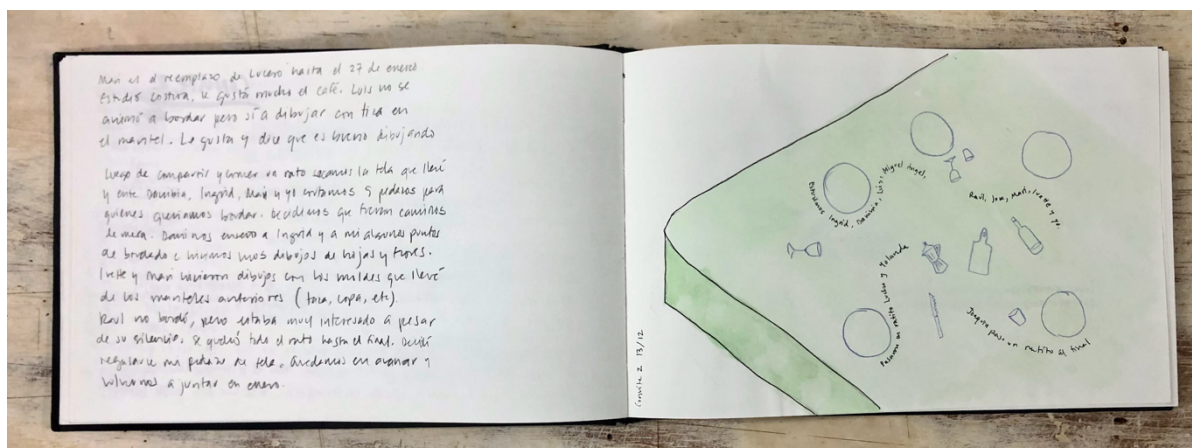 Mari es el reemplazo de Lucero hasta el 27 de enero
Estudió costura, le gusta mucho el café. Luis no se
animó a bordar pero sí a dibujar con tiza en
el mantel. Le gusta y dice que es bueno dibujando
Luego de compartir y comer un rato sacamos la tela que llevé
y entre Ingrid, Mari y yo cortamos 5 pedazos para
quienes queríamos bordar. Decidimos que fueran caminos
de mesa. enseñó a Ingrid y a mi algunos puntos
de bordado e hicimos unos dibujos de hojas y flores.
Ivette y Mari hicieron dibujos con los moldes que llevé
de los manteles anteriores (taza, copa, etc).
Raúl no bordó, pero estaba muy interesado a pesar
de su silencio, se quedó todo el rato hasta el final. Decidí
regalarle mi pedazo de tela. Quedamos en avanzar y
volvernos a juntar en enero.
Convite 2 13/12
Estuvimos Ingrid, Luis, Miguel Angel,
Raúl, Jose, Mari, Ivette y yo.
Pasaron a Lucha y Yolanda
Joaquin pasó un ratito al final